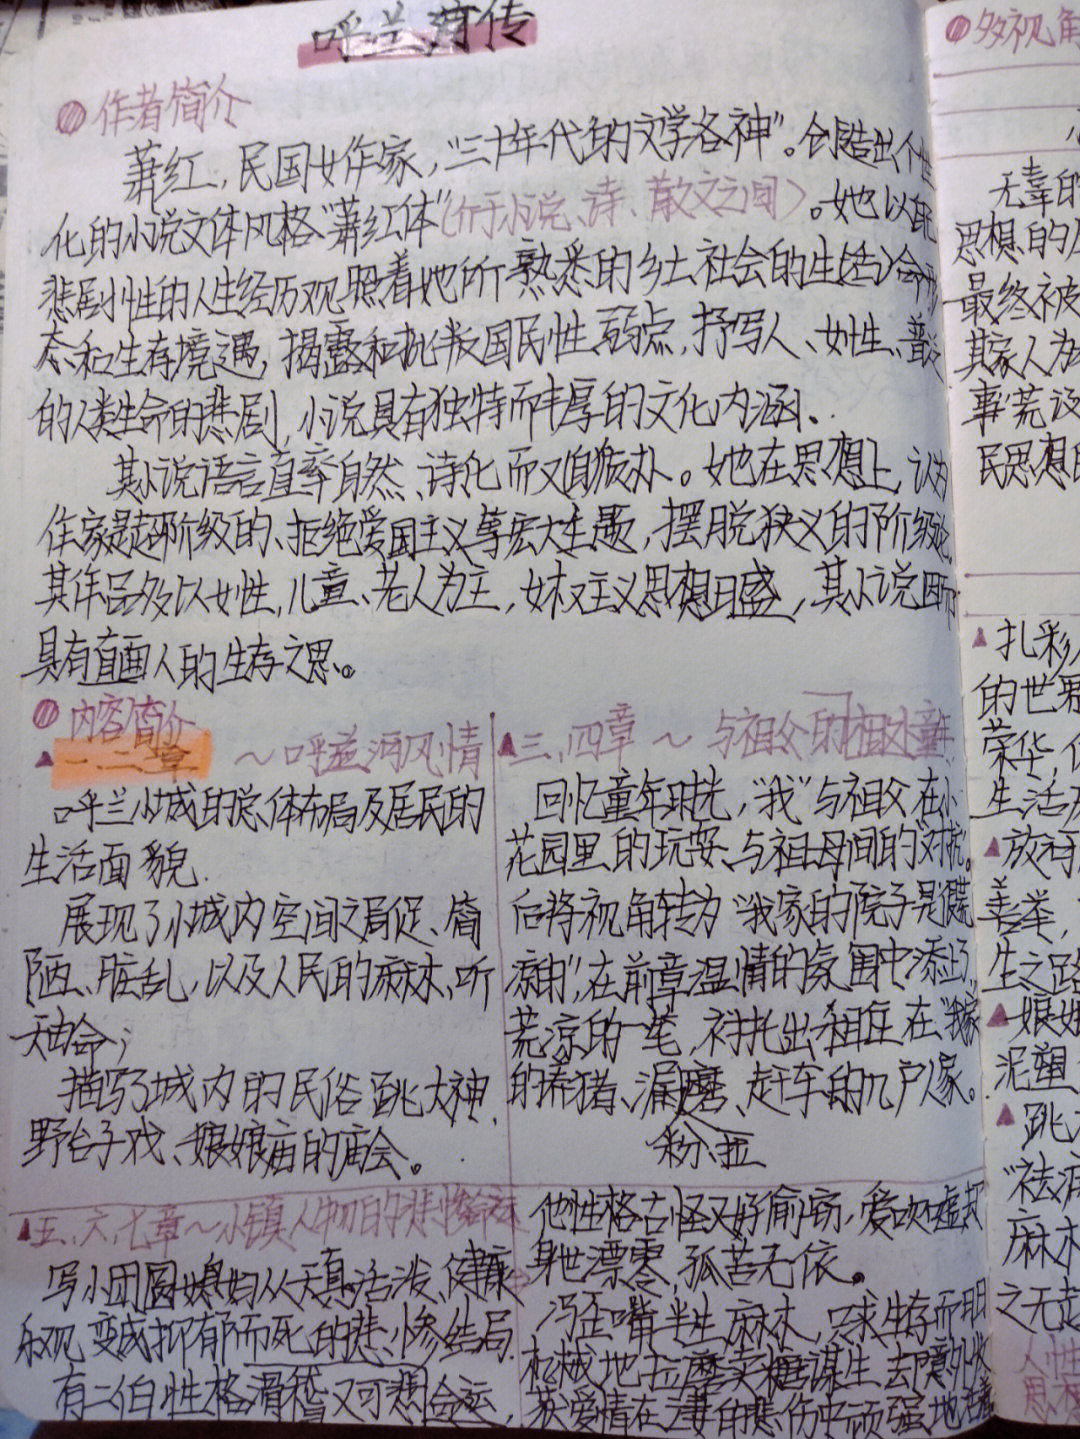 呼兰河传
作者简介
萧红，民国女作家，“三十年代的文学洛神”。创造出个性
化的小说文体风格“萧红体”（介于小说、诗、散文之间）。她以
悲剧性的人生经历观照着她所熟悉的乡土社会的生活
态和生存境遇，揭露和批叛国民性弱点，抒写人、女性、普
的人类生命的悲剧，小说具有独特而丰厚的文化内涵。
其小说语言直率自然、诗化而又。她在思想上，认为
作家是超阶级的、拒绝爱国主义等宏大主题，摆脱狭义的阶级论，
其作品多以女性，儿童、老人为主，女权主义思想日盛，其小说因而
具有直面人的生存之思。
内容简介
一、二章 ～呼兰河风情
呼兰小城的总体布局及居民的
生活面貌.
展现了小城内空间之局促、简
陋、脏乱，以及人民的麻木、听
天由命；
描写了城内的民俗跳大神、
野台子戏、娘娘庙的庙会。
三、四章 ～ 与祖父的相处童年
回忆童年时光，“我”与祖父在小
花园里的玩耍、与祖母间的对抗。
后将视角转为“我家的院子是很荒
凉的”，在前章温情的氛围中添上
荒凉的一笔，衬托出租住在“我家”
的养猪、漏粉、拉磨、赶车的几户人家。
五、六、七章～小镇人物的悲惨命运
写小团圆媳妇从天真活泼、健康
乐观变成抑郁而死的悲惨结局.
有二伯性格滑稽又可想命运，
他性格古怪又好偷窃，爱吹嘘却
身世漂零，孤苦无依。
冯歪嘴半生麻木，只求生存而
机械地拉磨卖糖谋生，却意外收
获爱情在亡妻的悲伤中顽强地活着
多视角
无辜的
思想的
最终被
其家人为
事荒
民思想
扎彩
的世界
荣华，
生活
放河
善举，
生之路
娘娘
泥塑
跳
“祛病
麻木
之无
人性
思想